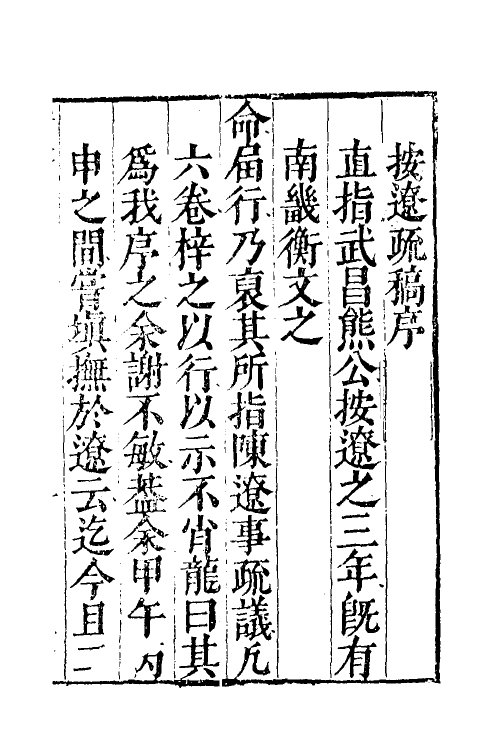 按遼疏稿序
直指武昌熊公按遼之三年旣有
南畿衡文之
命届行乃裒其所指陳遼事疏議凡
六卷梓之以行以示不肖龍曰其
爲我序之余謝不敏葢余甲午丙
申之間甞塡撫於遼云迄今且二